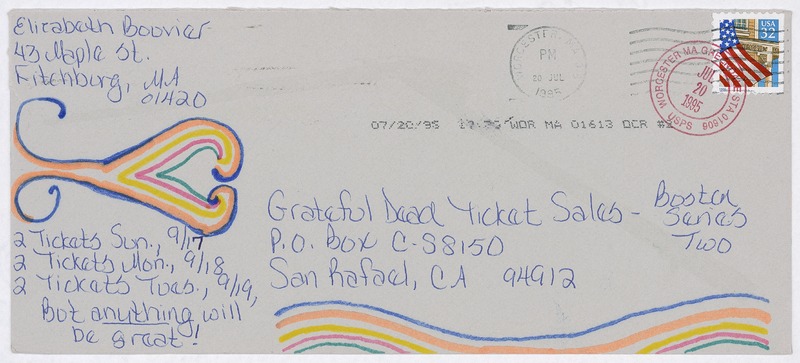 Elizabeth Bouvier
43 Maple St.
Fitchburg, MA
01420
WORCESTER, MA
PM
20 JUL
1995
USA
32
WORCESTER MA GREENDALE STA 01606
JUL
20
1995
USPS
07/20/95 WOR MA 01613 OCR #
Grateful Dead Ticket Sales - Boston
Series
Two
P.O. Box C-S8150
San Rafael, CA 94912
2 Tickets Sun., 9/17
2 Tickets Mon., 9/18
2 Tickets Tues., 9/19,
But anything will
be great!